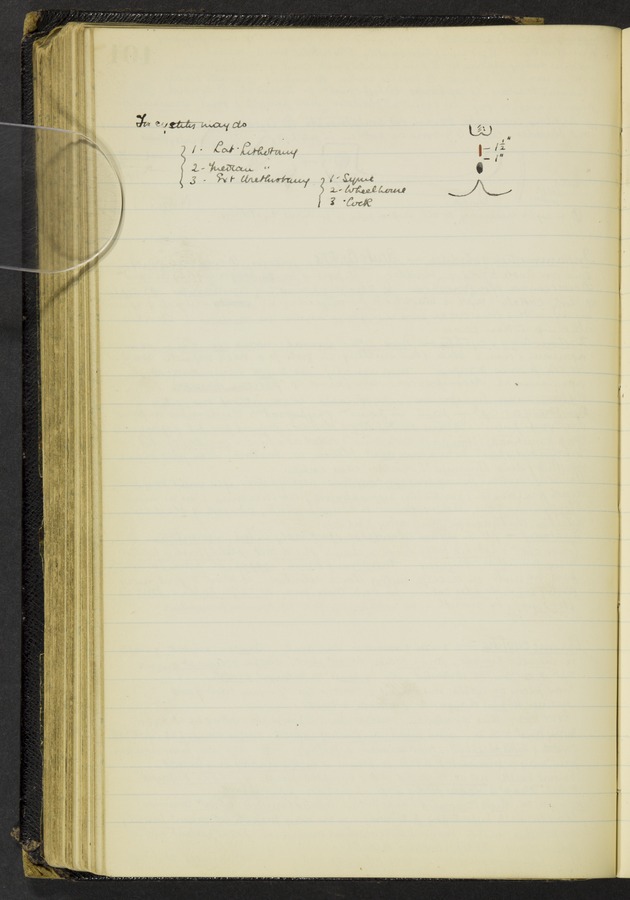 For cystitis may do
1. Lat. Lithotomy
2 - Median "
3. Ext Urethrotomy
1 - Syme
2 - Wheelhouse
3 - Cock
1½"
1"